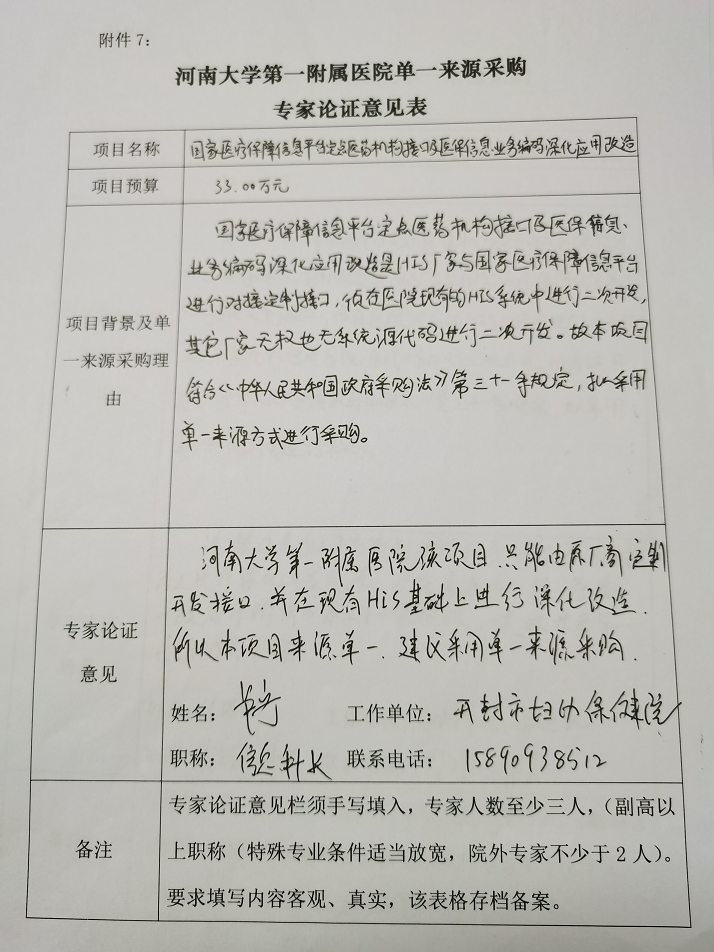 附件 7：
河南大学第一附属医院单一来源采购
专家论证意见表
项目名称
国家医疗保障信息平台定点医药机构接口及医保信息业务编码深化应用改造
项目预算
33.00万元
项目背景及单
一来源采购理
由
国家医疗保障信息平台定点医药机构接口及医保信息
业务编码深化应用改造是HIS厂家与国家医疗保障信息平台
进行对接定制接口，须在医院现有的HIS系统中进行二次开发，
其它厂家无权也无系统源代码进行二次开发。故本项目
符合《中华人民共和国政府采购法》第三十一条规定，拟采用
单一来源方式进行采购。
专家论证
意见
河南大学第一附属医院该项目只能由原厂商定制
开发接口，并在现有HiS基础上进行深化改造，
所以本项目来源单一，建议采用单一来源采购。
姓名：
工作单位：开封市妇幼保健院
职称：信息科长
联系电话：15890938512
备注
专家论证意见栏须手写填入，专家人数至少三人，（副高以
上职称（特殊专业条件适当放宽，院外专家不少于 2 人）。
要求填写内容客观、真实，该表格存档备案。